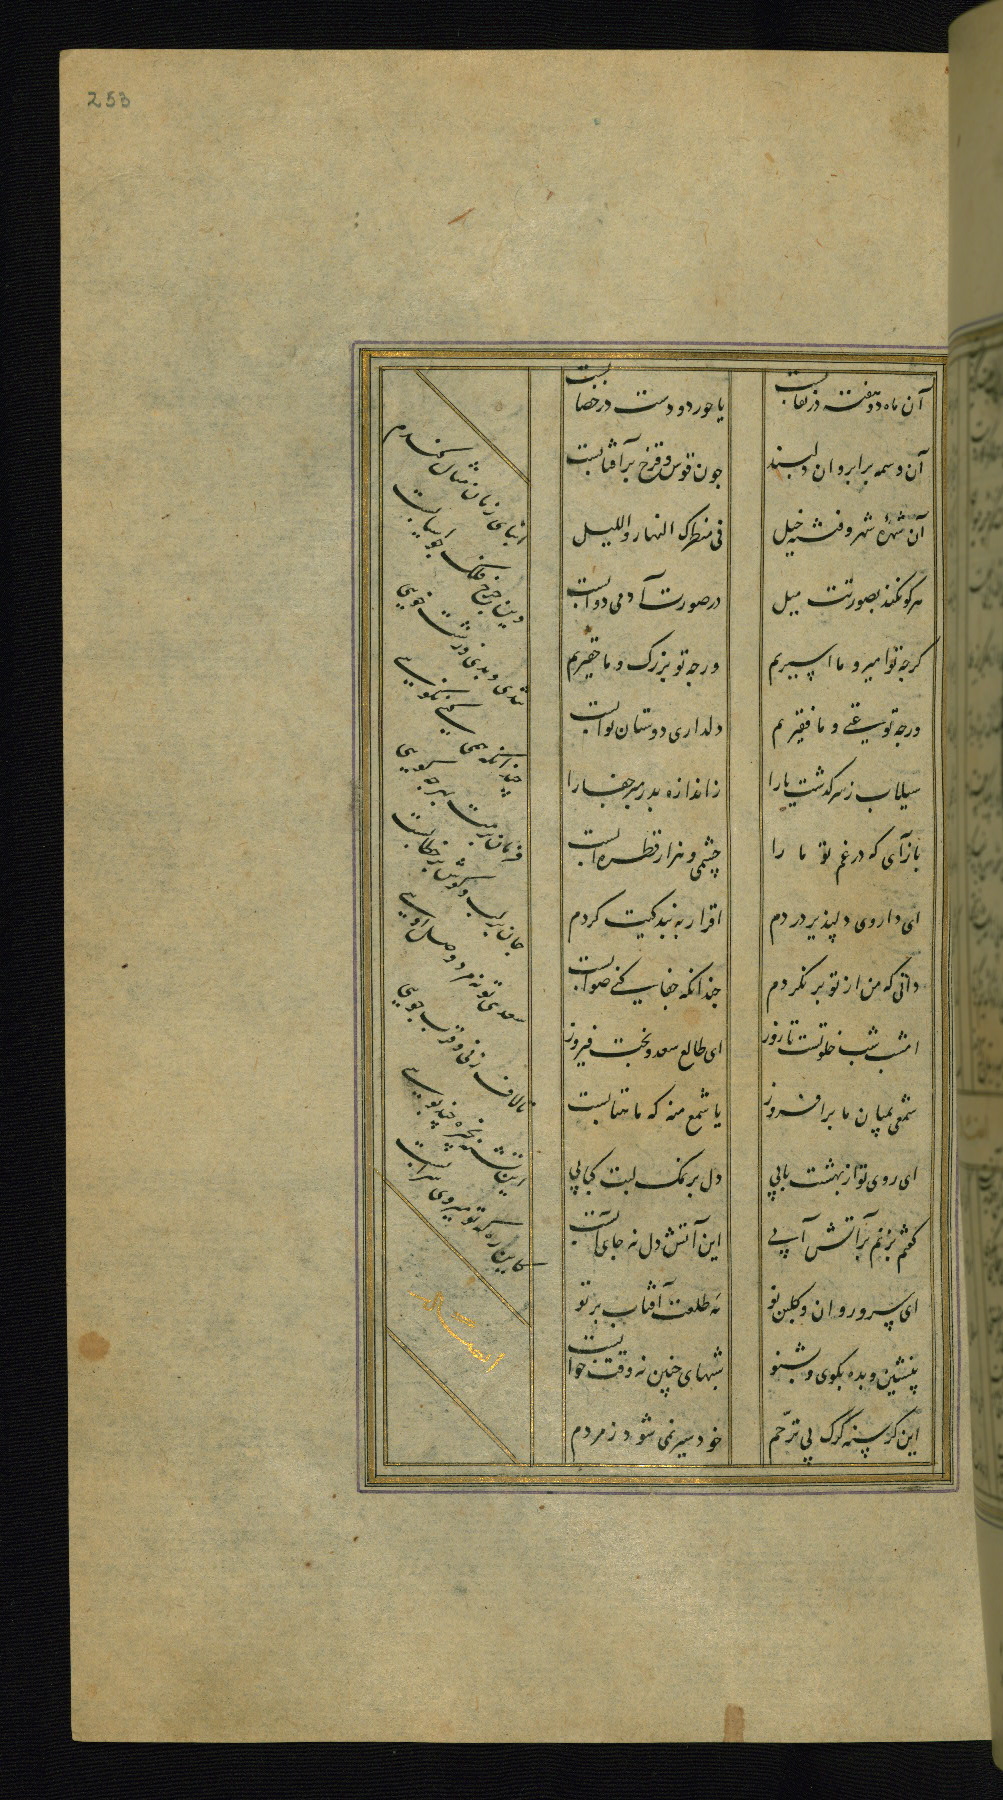 253
آن ماه دو هفته در نقابست
یا حور دو دست در خضابست
آن وسمه بر ابروان دلبند
چون قوس و قزح بر آفتابست
آن شهرهٔ شهر و فتنهٔ خیل
فی منظرک النهار و اللیل
هر کو نکند بصورتت میل
در صورت آدمی دوابست
کرچه تو امیر و ما اسیریم
ورچه تو بزرک و ما حقیریم
ورچه تو غنی و ما فقیریم
دلداری دوستان ثوابست
سیلاب ز سر کذشت یارا
ز اندازه بدر مبر جفا را
بازآی که در غم تو ما را
چشمی و هزار قطره ابست
ای داروی دلپذیر دردم
اقرار به بندکیت کردم
دانی که من از تو بر نکردم
چندانکه جفا کنی صوابست
امشب شب خلوتست تا روز
ای طالع سعد و بخت فیروز
شمعی بمیان ما برافروز
یا شمع منه که ماهتابست
ای روی تو از بهشت بابی
دل بر نمک لبت کبابی
کفتم بزنم بر آتش آبی
این آتش دل نه جای آبست
ای سرو روان و کلبن نو
مه طلعت آفتاب پرتو
بنشین و بده بکوی و بشنو
شبهای چنین نه وقت خوابست
این کرسنه کرک بی ترحم
خود سیر نمی شود ز مردم
ابنای زمان مثال کندم
وین چرخ فلک چو اسیابست
تندی و بدی و زشت خویی
چندانکه همی کنی نکویی
فرمان برمت بهرچه کویی
جان بر لب و کوش بر خطابست
سعدی تو نه مرد وصل اویی
تا لاف زنی و قرب جویی
این تشنه بخیره چند پویی
کاین ره که تو میروی سرابست